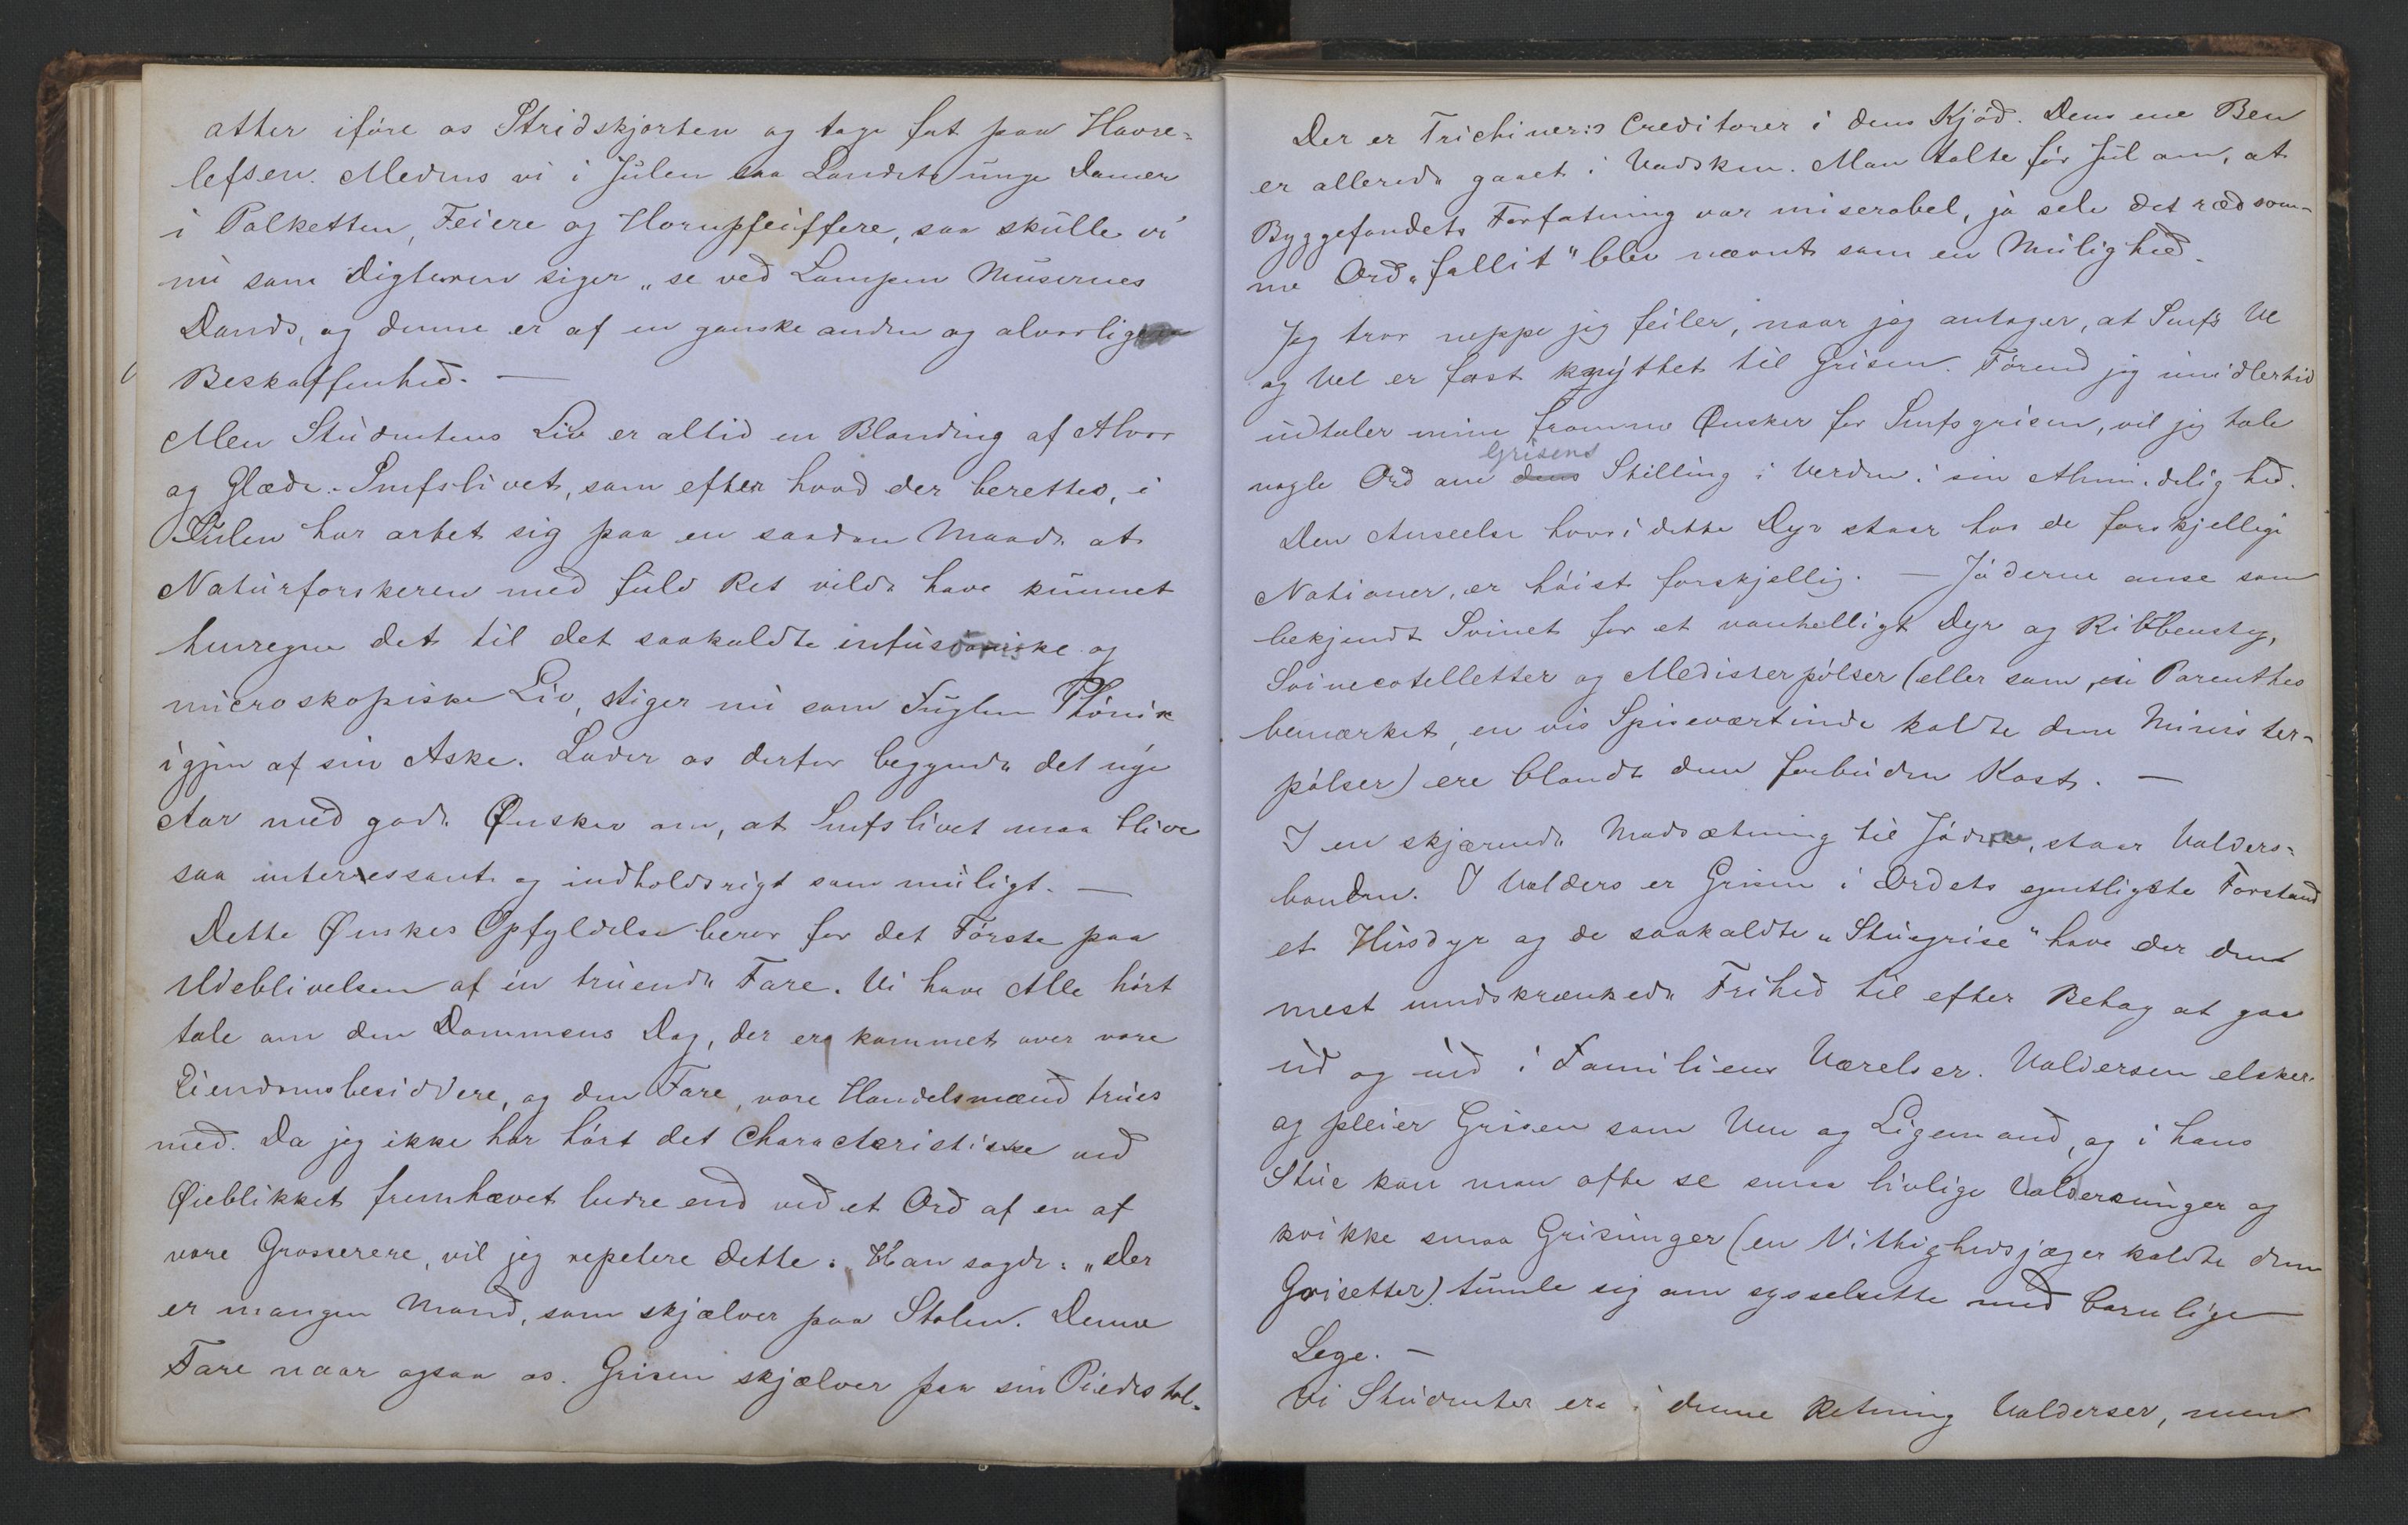 atter iføre os Stridskjorten og tage fat paa Havre-
lefsen. Medens vi i Julen saa Landets unge Damer
i Polketten, Feiere og Hornpfeiffere, saa skulle vi
nu som Digteren siger „se ved Lampen Musernes
Dands, og denne er af en ganske anden og alvorlig
Beskaffenhed. —
Men Studentens Liv er altid en Blanding af Alvor
og Glæde. Smfslivet, som efter hvad der berettes, i
Julen har artet sig paa en saadan Maade at
Naturforskeren med fuld Ret vilde have kunnet
henregne det til det saakaldte infusoriske og
microskopiske Liv, stiger nu som Fuglen Phønix
igjen af sin Aske. Lader os derfor begynde det nye
Aar med gode Ønsker om, at Smfslivet maa blive
saa interressant og indholdsrigt som muligt. —
Dette Ønskes Opfyldelse beror for det Første paa
Udeblivelsen af en truende Fare. Vi have Alle hørt
tale om den Dommens Dag, der er kommet over vore
Eiendomsbesiddere, og den Fare, vore Handelsmænd trues
med. Da jeg ikke har hørt det Characteristiske ved
Øieblikket fremhævet bedre end ved et Ord af en af
vore Grosserere, vil jeg repetere dette. Han sagde: „Der
er mangen Mand, som skjælver paa Stolen. Denne
Fare naar ogsaa os. Grisen skjælver paa sin Piedestal.
Der er Trichiner: Creditorer i dens Kjød. Dens ene Ben
er allerede gaaet i Vadsken. Man talte før Jul om, at
Byggefondets Forfatning var miserabel, ja selv det rædsom-
me Ord „fallit" blev nævnt som en Mulighed.
Jeg tror neppe jeg feiler, naar jeg antager, at Smfs Ve
og Vel er fast knyttet til Grisen. Førend jeg imidlertid
udtaler mine fromme Ønsker for Smfsgrisen, vil jeg tale
nogle Ord om dens Grisens Stilling i Verden i sin Almindelighed.
Den Anseelse hvori dette Dyr staar hos de forskjellige
Nationer, er høist forskjellig. — Jøderne anse som
bekjendt Svinet for et vanhelligt Dyr og Ribbensteg,
Svinecotelletter og Medisterpølser (eller som, en Parenthes
bemærket, en vis Spiseværtinde kaldte dem Minister-
pølser) ere blandt dem forbuden Kost. —
I en skjærende Modsætning til Jøderne, staar Valders-
bonden. I Valders er Grisen i Ordets egentligste Forstand
et Husdyr og de saakaldte „Stuegrise" have der den
mest uindskrænkede Frihed til efter Behag at gaa
ud og ind i Familiens Værelser. Valdersen elsker
og pleier Grisen som Ven og Ligemand, og i hans
Stue kan man ofte se smaa livlige Valdersunger og
kvikke smaa Grisunger (en Vittighedsjæger kaldte dem
Grisetter) tumle sig om sysselsatte med barnlige
Lege. —
Vi Studenter ere i denne Retning Valderser, men